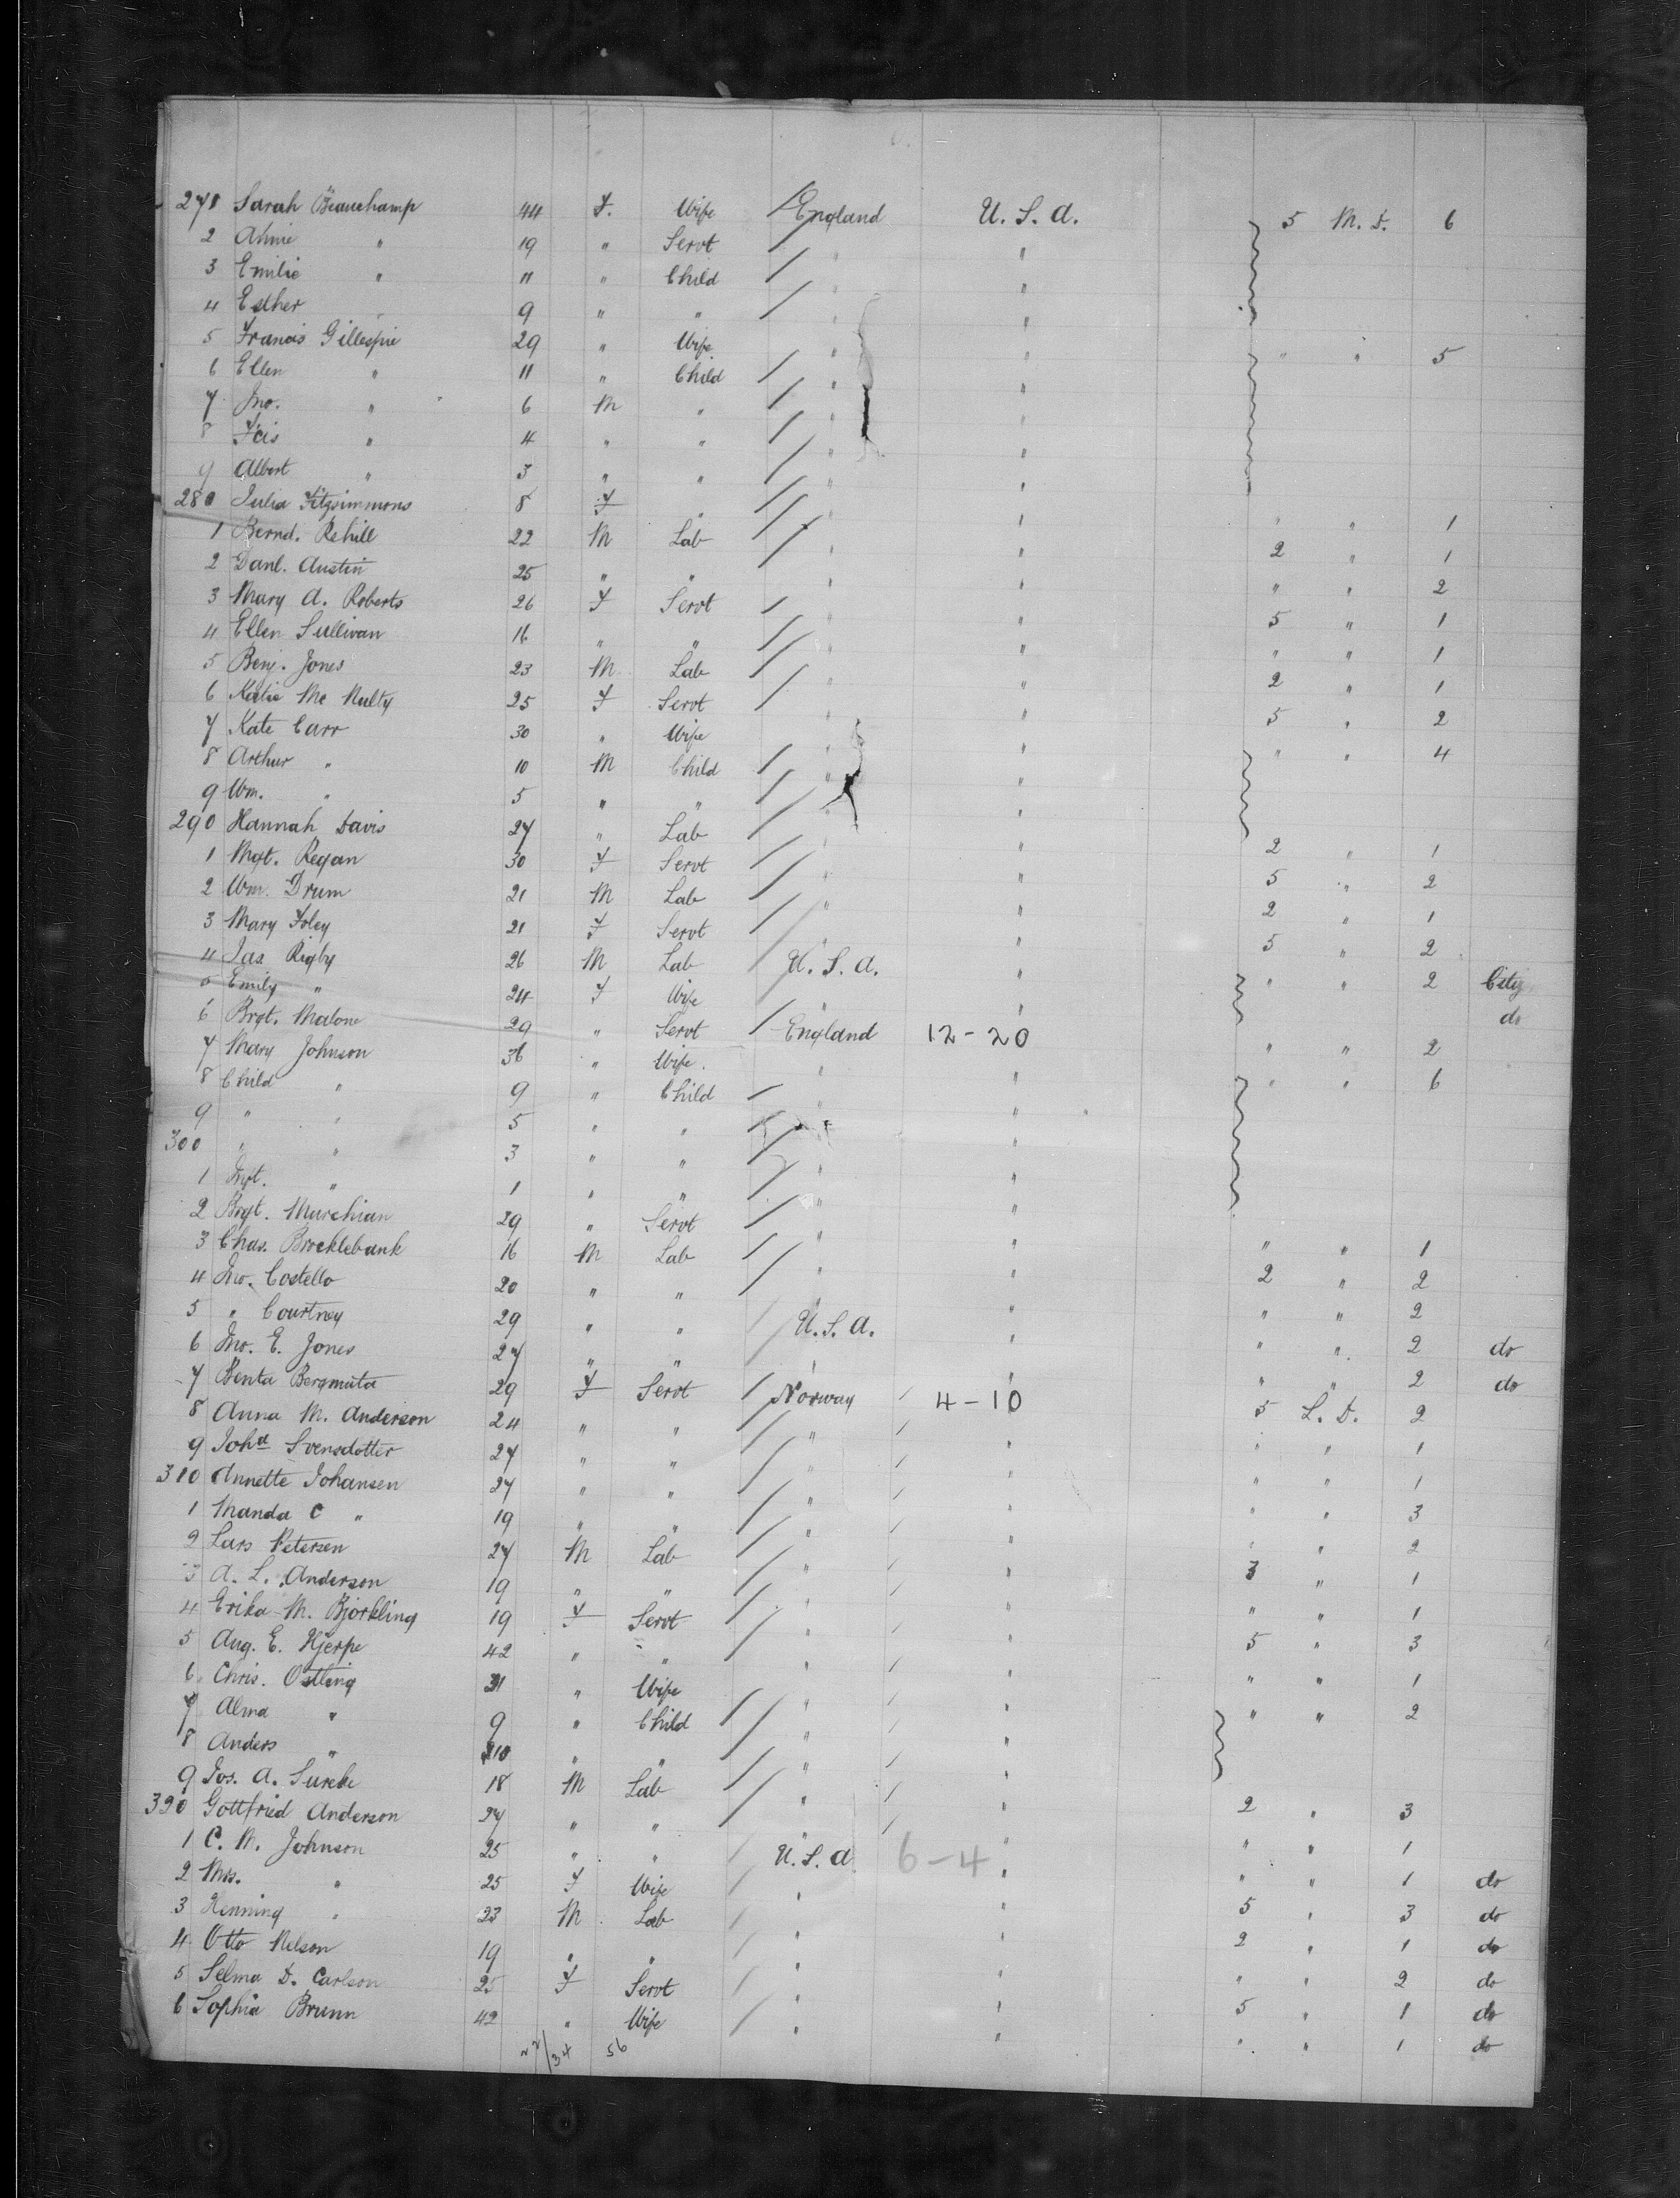 271 Sarah Beauchamp 44 F. Wife England U. S. A. 5 M. D. 6
2 Annie " 19 " Servt " "
3 Emilie " 11 " Child " "
4 Esther " 9 " " " "
5 Francis Gillespie 29 " Wife " " " " 5
6 Ellen " 11 " Child " "
7 Jno. " 6 M " " "
8 Fcis " 4 " " " "
9 Albert " 3 " " " "
280 Julia Fitzsimmons 8 F " " " " " 1
1 Bernd. Rehill 22 M Lab " " 2 " 1
2 Danl. Austin 25 " " " " " " 2
3 Mary A. Roberts 26 F Servt " " 5 " 1
4 Ellen Sullivan 16 " " " " " " 1
5 Benj. Jones 23 M Lab " " 2 " 1
6 Katie Mc Nulty 25 F Servt " " 5 " 2
7 Kate Carr 30 " Wife " " " " 4
8 Arthur " 10 M Child " "
9 Wm. " 5 " " " "
290 Hannah Davis 27 " Lab " " 2 " 1
1 Mgt. Regan 30 F Servt " " 5 " 2
2 Wm. Drum 21 M Lab " " 2 " 1
3 Mary Foley 21 F Servt " " 5 " 2
4 Jas Rigby 26 M Lab U. S. A. " " " 2 City
5 Emily " 24 F Wife " " do
6 Brgt. Malone 29 " Servt England 12-20 " " 2
7 Mary Johnson 36 " Wife. " " " " 6
8 Child " 9 " Child " "
9 " " 5 " " " "
300 " " 3 " " " "
1 Mgt. " 1 " " " "
2 Brgt. Murchian 29 " Servt " " " " 1
3 Chas. Brocklebank 16 M Lab " " 2 " 2
4 Jno. Costello 20 " " " " " " 2
5 " Courtney 29 " " U. S. A. " " " 2 do
6 Jno. E. Jones 27 " " " " " " 2 do
7 Benta Bergmata 29 F Servt Norway 4-10 5 L. D. 2
8 Anna M. Anderson 24 " " " " " " 1
9 Johd Svensdotter 27 " " " " " " 1
310 Annette Johansen 27 " " " " " " 3
1 Manda C " 19 " " " " " " 2
2 Lars Petersen 27 M Lab " " 3 " 1
3 A. L. Anderson 19 " " " " " " 1
4 Erika M. Bjorkling 19 F Servt " " 5 " 3
5 Aug. E. Hjerpe 42 " " " " " " 1
6 Chris. Ostling 31 " Wife " " " " 2
7 Alma " 9 " Child " "
8 Anders " 10 " " " "
9 Jos. A. 18 M Lab " " 2 " 3
320 Gottfried Anderson 27 " " " " " " 1
1 C. M. Johnson 25 " " U. S. A 6-4 " " " 1 do
2 Mrs. " 25 F Wife " " 5 " 3 do
3 Henning " 23 M Lab " " 2 " 1 do
4 Otto Nelson 19 " " " " " " 2 do
5 Selma D. Carlson 25 F Servt " " 5 " 1 do
6 Sophia Brunn 42 " Wife " " " " 1 do
22/34 56